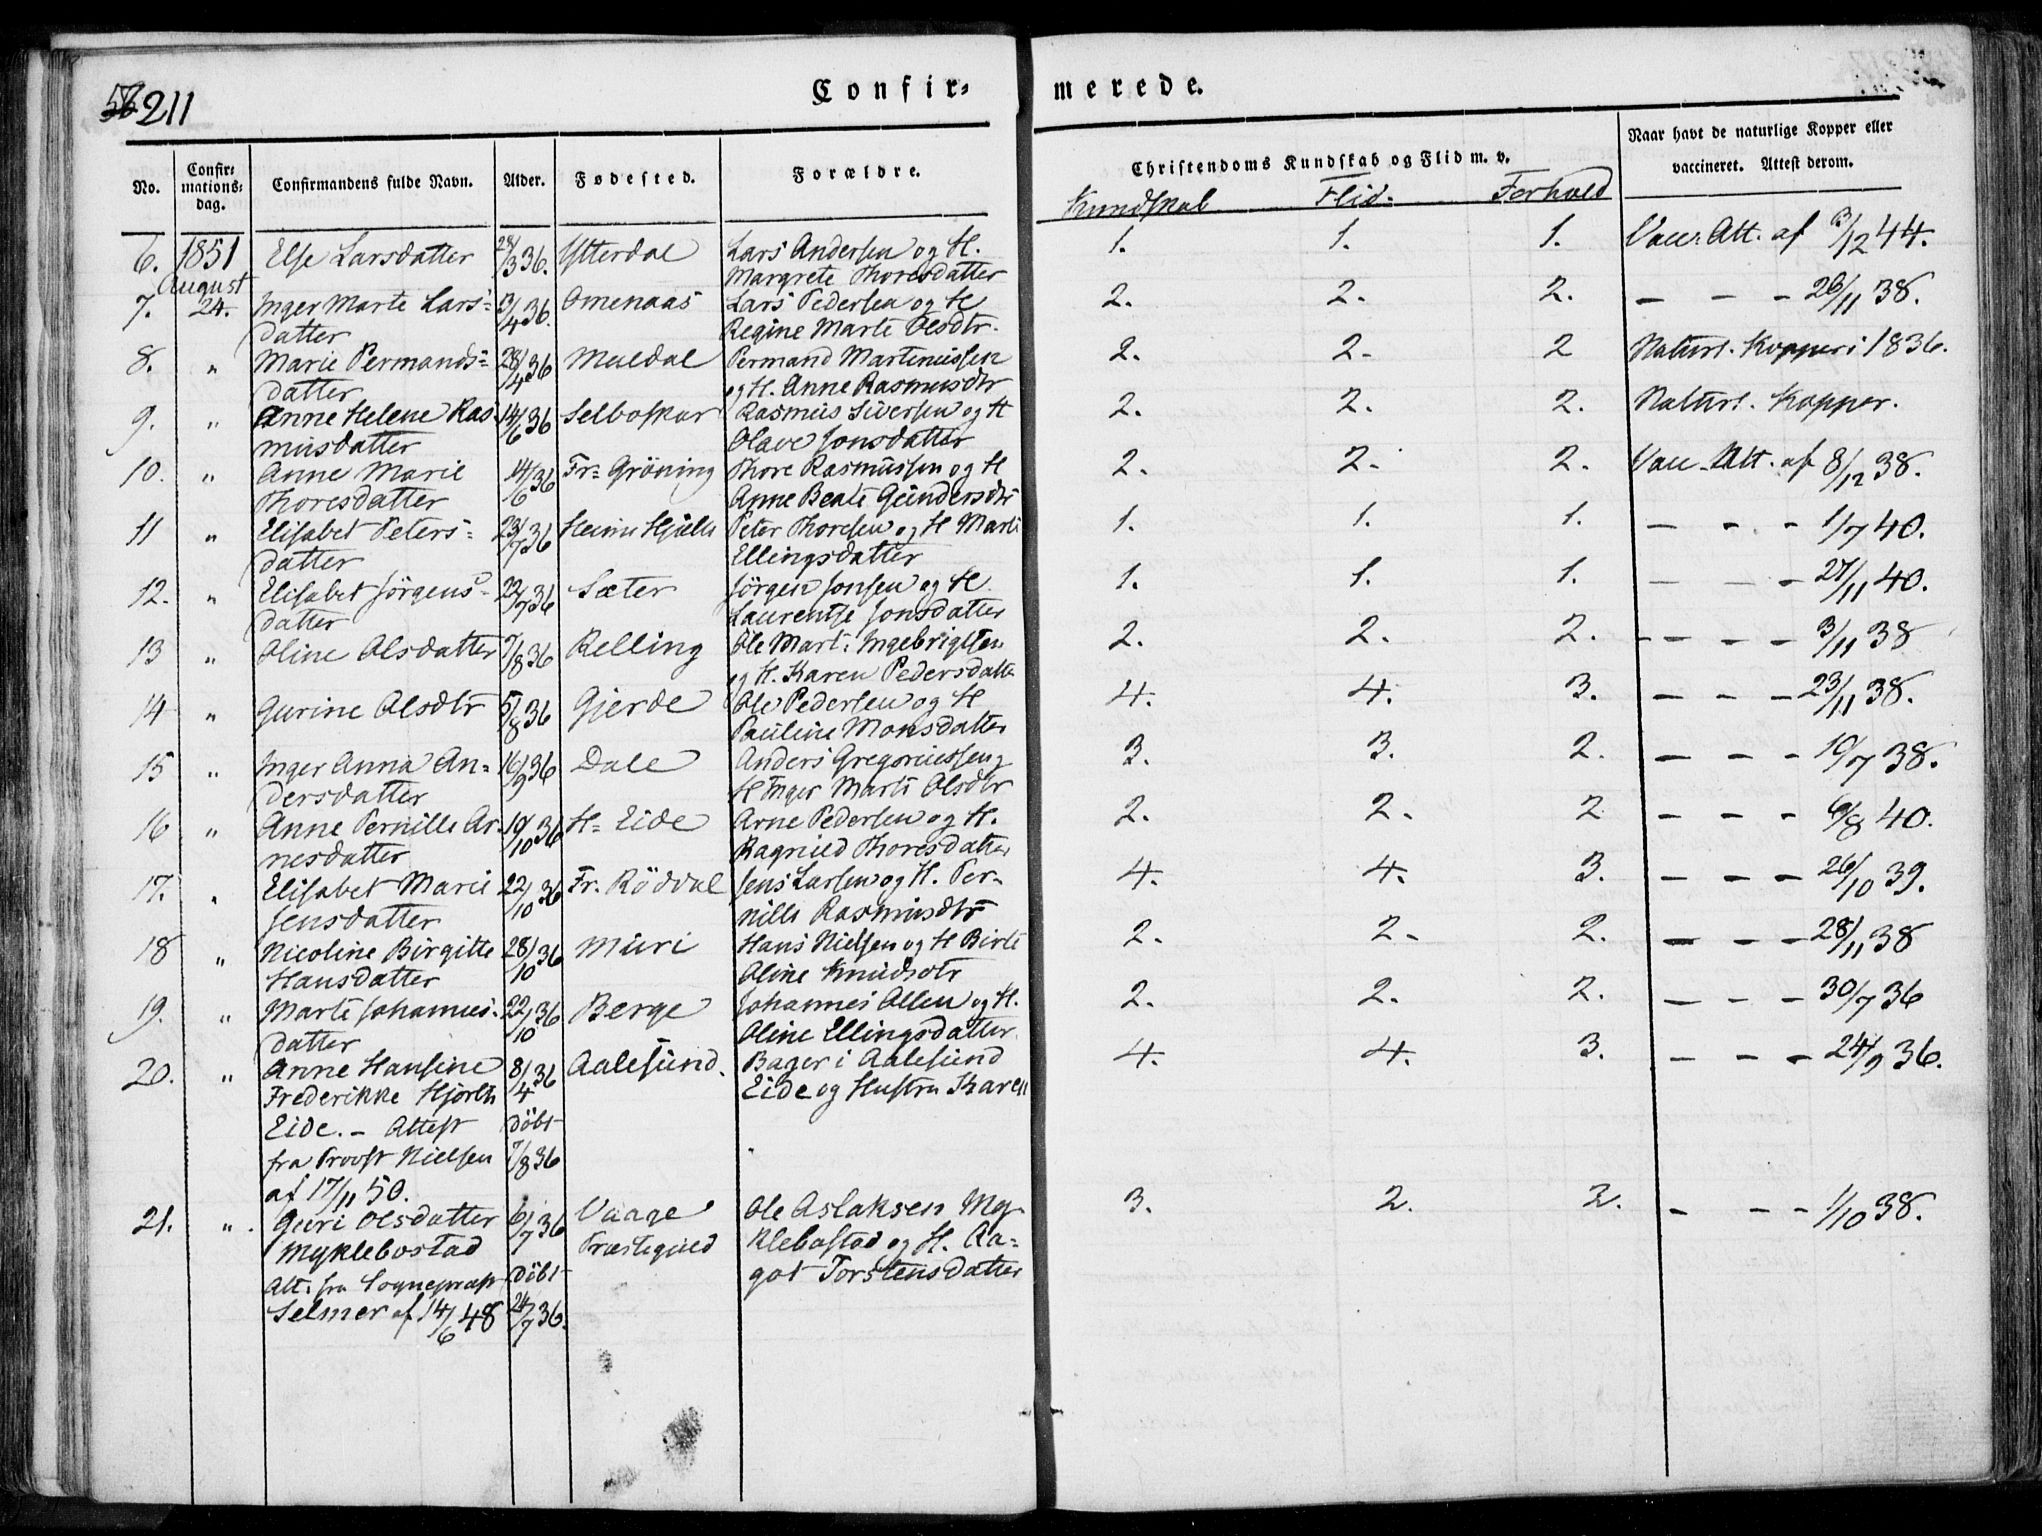 211
Confir=
merede.
No.
Confir=
mations=
dag.
Confirmandens fulde Navn.
Alder.
Fødested.
Forældre.
Christendoms Kundskab og Flid m. v.
Kundskab Flid. Forhold
Naar havt de naturlige Kopper eller
vaccineret. Attest derom.
6. 1851 Else Larsdatter 28/3 36. Ytterdal Lars Andersen og H. 1. 1. 1. Vacc. Att. af 3/12 44.
August Margrete Thoresdatter
7. 24. Inger Marte Lars= 13/4 36. Omenaas Lars Pedersen og H 2. 2. 2. — — — 26/11 38.
datter Regine Marte Olsdtr.
8. " Marie Permands= 28/4 36 Muldal Permand Martinussen 2. 2. 2 Naturl. Kopper i 1836.
datter og H. Anne Rasmusdtr
9. " Anne Helene Ras 14/6 36 Selboskar Rasmus Siversen og H 2. 2. 2. Naturl. Kopper.
musdatter Olave Jonsdatter
10. " Anne Marie 14/6 36 Fr= Gröning Thore Rasmussen og H 2. 2. 2. Vacc. Att. af 8/12 38.
Thoresdatter Anne Beate Gundersdtr
11 " Elisabet Peters= 23/7 36 Hjelle Peter Thoresen og H Marte 1. 1. 1. — — — 1/7 40.
datter Ellingsdatter
12. " Elisabet Jörgens= 22/7 36 Sæter Jörgen Jonsen og H. 1. 1. 1. — — — 27/11 40.
datter Laurentse Jonsdatter
13 " Oline Olsdatter 7/8 36 Relling Ole Mart: Ingebrigtsen 2. 2. 2. — — — 3/11 38
og H. Karen Pedersdatter
14 " Gurine Olsdtr 5/8 36 Gjerde Ole Pedersen og H 4. 4. 3. — — — 23/11 38.
Pauline Monsdatter
15 " Inger Anna An= 16/9 36 Dale Anders Gregoriussen og 3. 3. 2. — — — 10/7 38.
dersdatter H Inger Marte Olsdtr
16 " Anne Pernille Ar= 10/10 36 H= Eide Arne Pedersen og H. 2. 2. 2 — — — 6/8 40.
nesdatter Ragnild Thoresdatter
17. " Elisabet Marie 22/10 36 Fr. Röddal Jens Larsen og H. Per= 4. 4. 3. — — — 26/10 39.
Jensdatter nille Rasmusdtr
18 " Nicoline Birgitte 28/10 36 Muri Hans Nielsen og H Birte 2. 2. 2. — — — 28/11 38
Hansdatter Oline Knudsdtr
19. " Marte Johannes= 22/10 36 Berge Johannes Olsen og H. 2. 2. 2. — — — 30/7 36
datter Oline Ellingsdatter.
20. " Anne Hansine 8/4 36 Aalesund. Bager i Aalesund 4. 4. 3. — — — 24/9 36.
Frederikke Hjorth Eide og Hustru Karen
Eide. — Attest Döbt
fra Provst Nielsen 7/8 36
af 17/11 50.
21. " Guri Olsdatter 6/7 36 Vaage Ole Aslaksen My= 3. 2. 2. — — — 1/10 38.
Myklebostad Præstegjeld klebostad og H. Aa=
Att. fra Sogneprest Döbt got Torstensdatter
Selmer af 14/6 48 24/7 36.